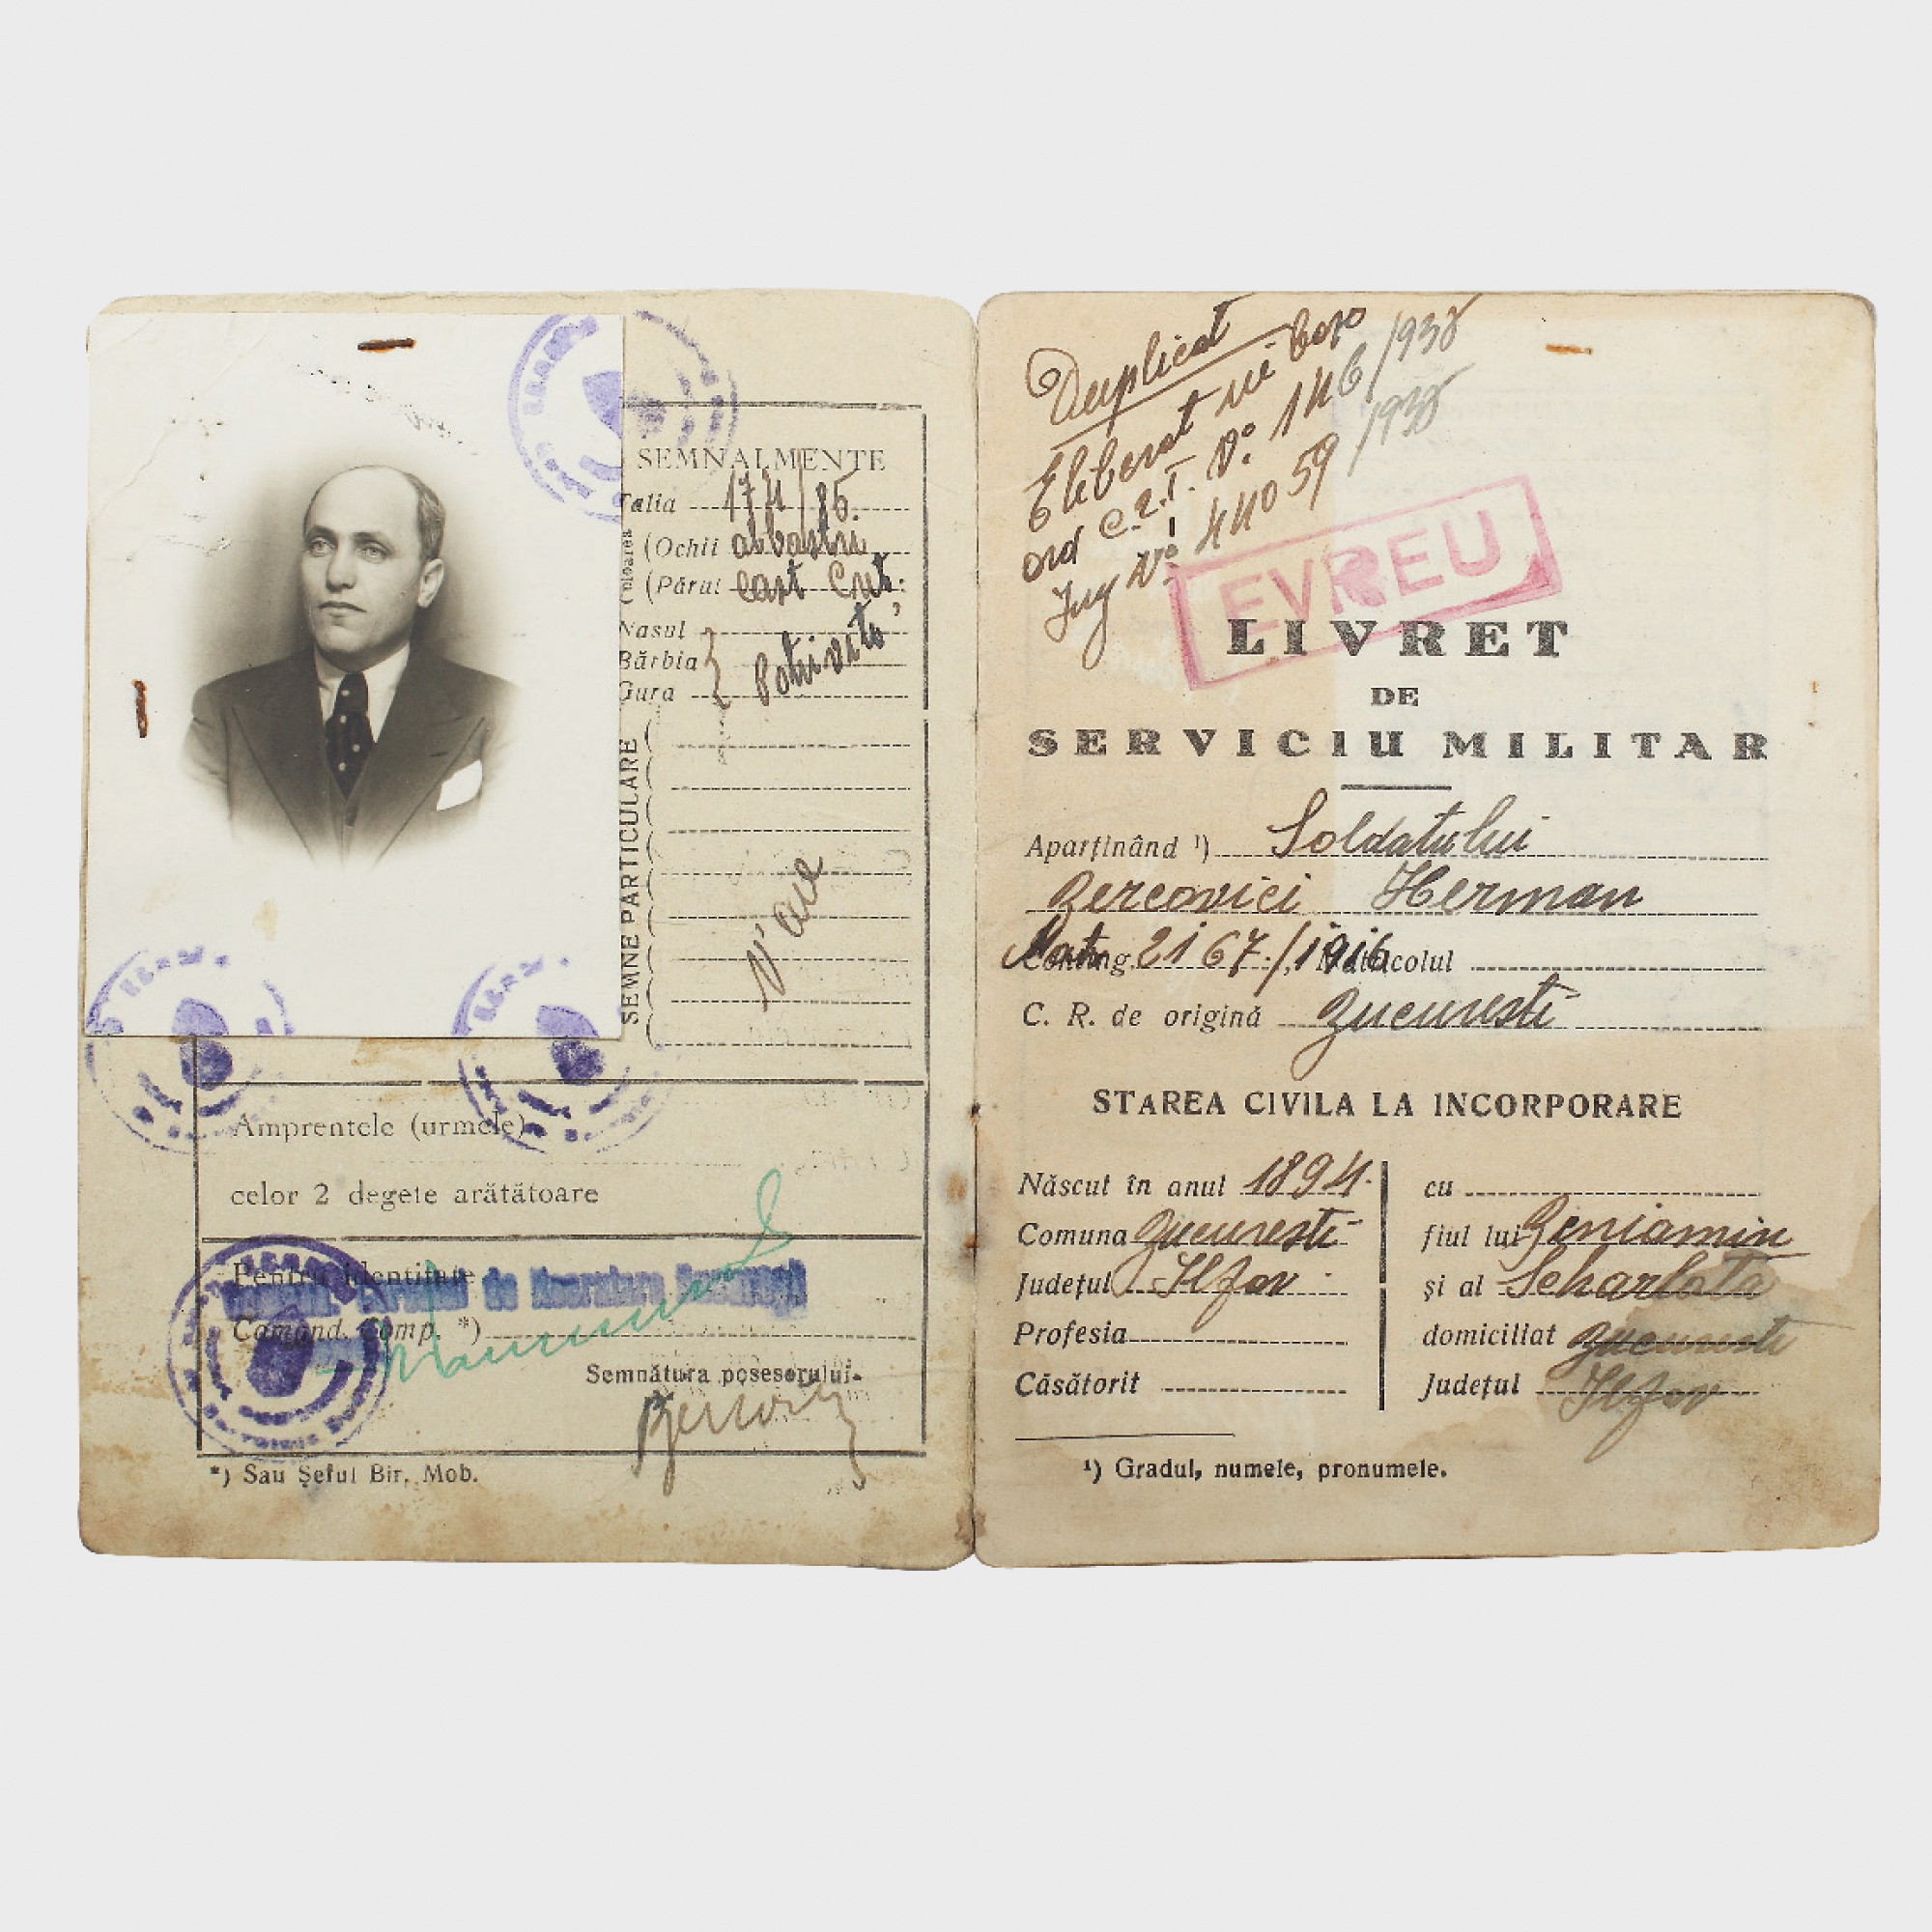 SEMNALMENTE
Talia 174/85.
(Ochii albastri
(Părul cast
Nasul
Bărbia
Gura Potrivite
SEMNE PARTICULARE
N'are
Amprentele (urmele)
celor 2 degete arătătoare
Pentru identitate
Comand. Comp. *)
Semnătura posesorului.
*) Sau Șeful Bir. Mob.
Duplicat
Eliberat
ord C.2.T. No. 146/938
No. 44059/938
EVREU
LIVRET
DE
SERVICIU MILITAR
Aparținând ¹) Soldatului
Bercovici Herman
Conting. 2167/1916 Matricolul
C. R. de origină Bucuresti
STAREA CIVILA LA INCORPORARE
Născut în anul 1894. cu
Comuna Bucuresti fiul lui Beniamin
Județul Ilfov și al Scharlota
Profesia domiciliat Bucuresti
Căsătorit Județul Ilfov
¹) Gradul, numele, pronumele.